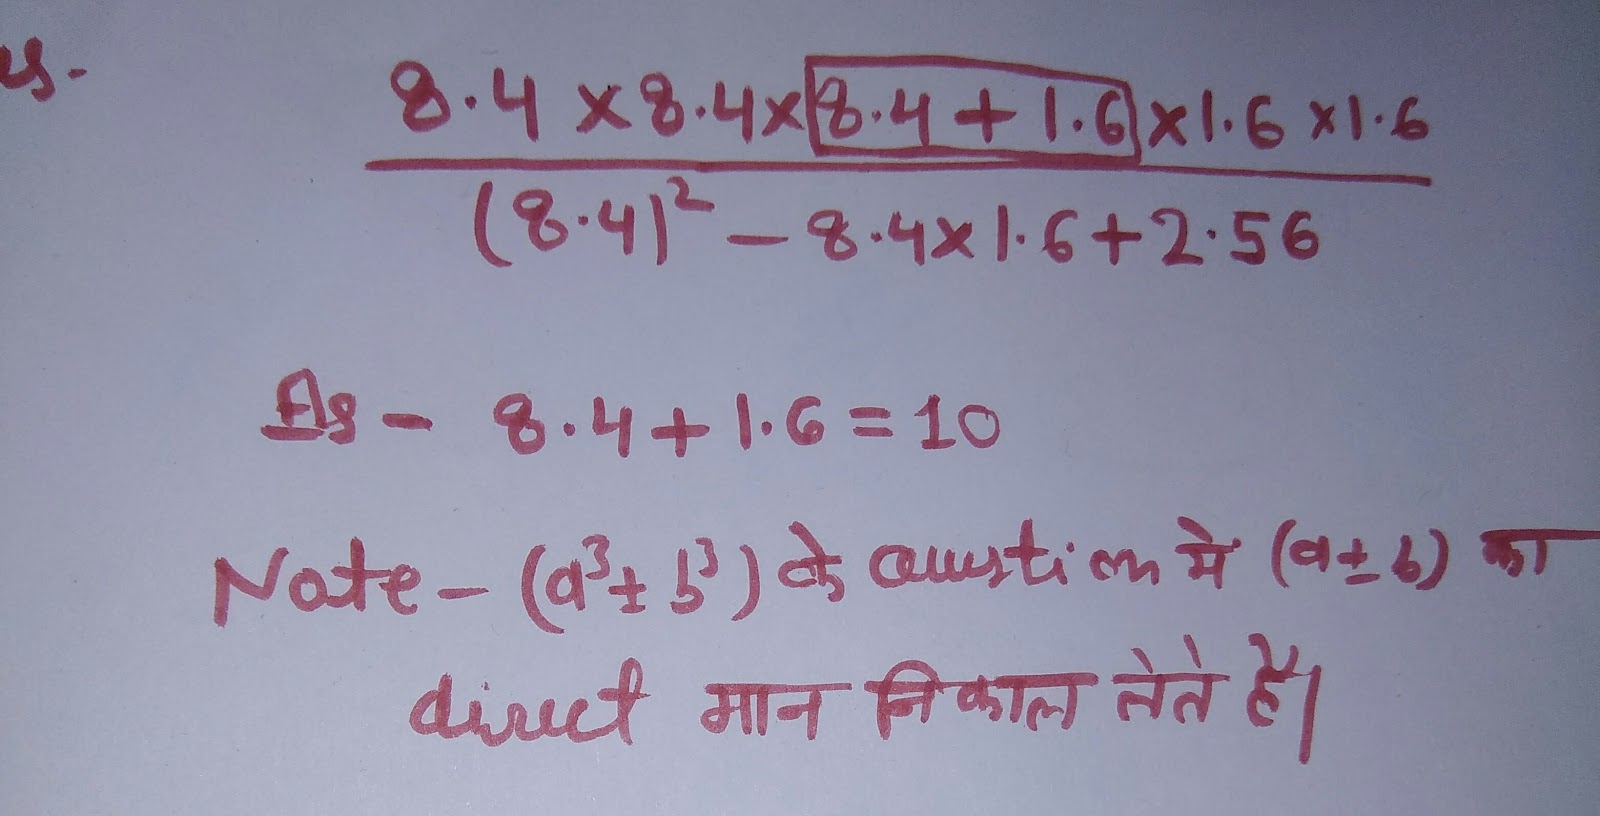 8.4 × 8.4 × 8.4 + 1.6 × 1.6 × 1.6
(8.4)² - 8.4 × 1.6 + 2.56
As - 8.4 + 1.6 = 10
Note - (a³ ± b³) के question मे (a ± b) का
direct मान निकाल लेते हैं।